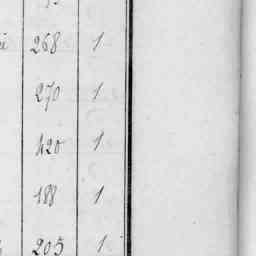 268 1
270 1
420 1
188 1
205 1